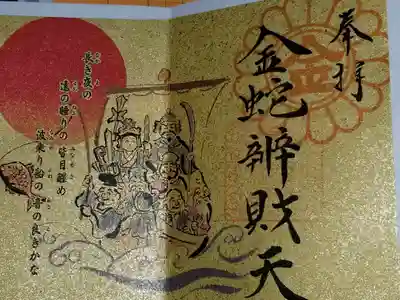 奉拝
金
金蛇辨財天
長き夜の
遠の睡りの
皆目醒め
波乗り船の
音の良きかな